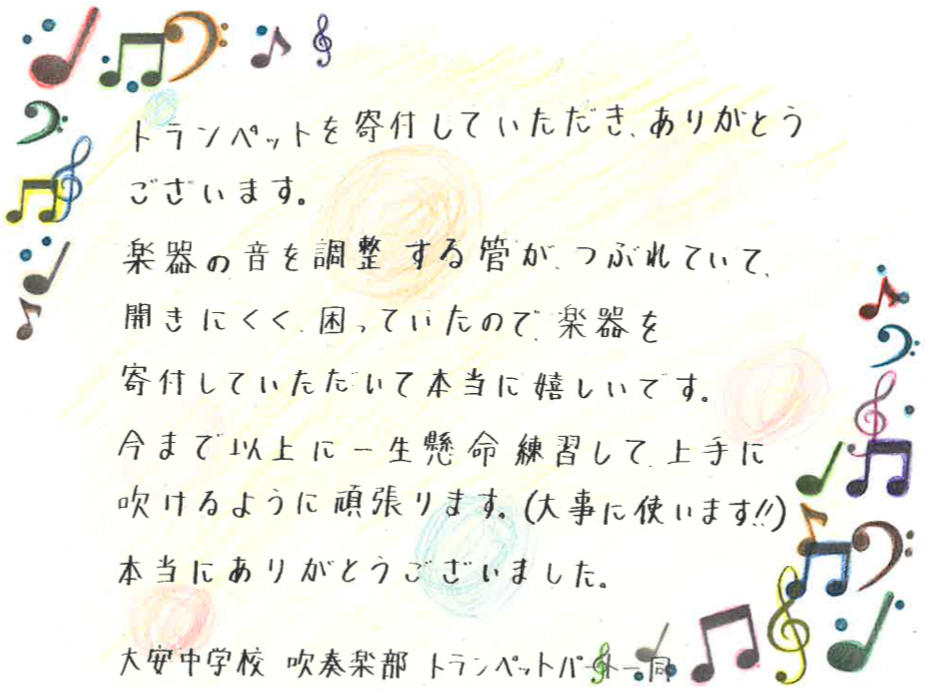 トランペットを寄付していただき、ありがとう
ございます。
楽器の音を調整する管が、つぶれていて、
開きにくく、困っていたので、楽器を
寄付していただいて本当に嬉しいです。
今まで以上に一生懸命練習して、上手に
吹けるように頑張ります。(大事に使います!!)
本当にありがとうございました。
大安中学校 吹奏楽部 トランペットパート一同